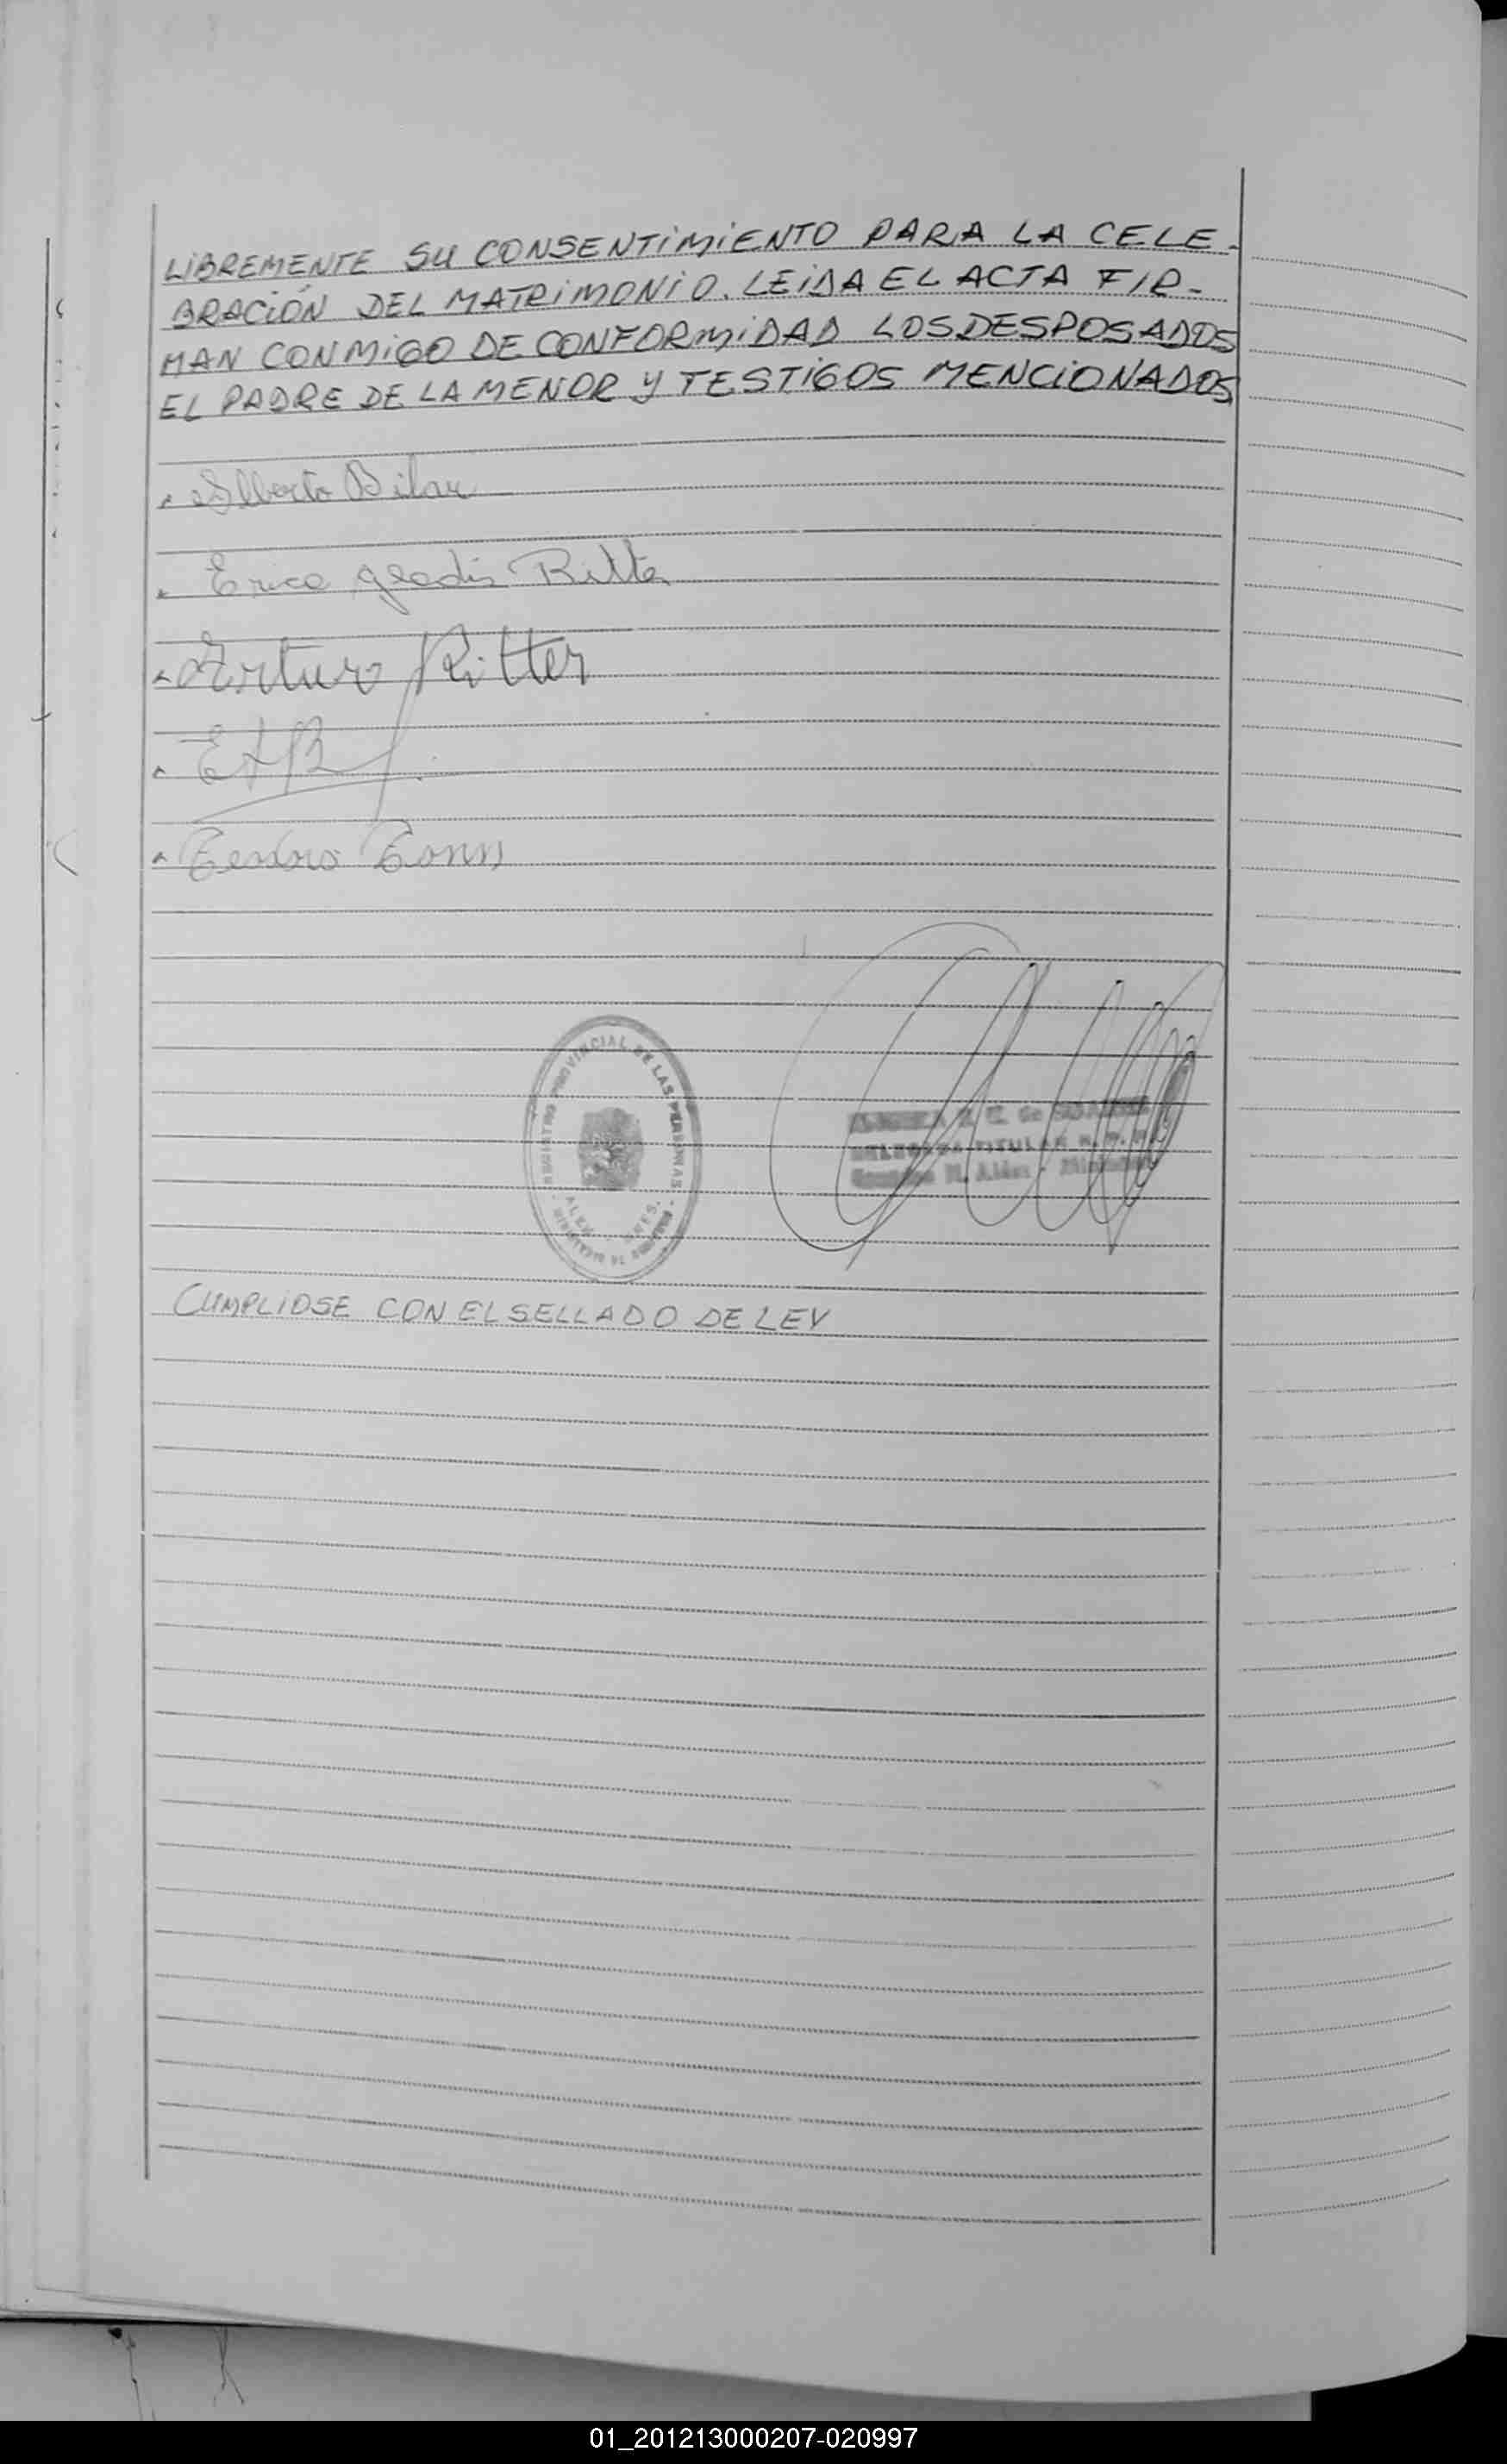 LIBREMENTE SU CONSENTIMIENTO PARA LA CELE-
BRACIÓN DEL MATRIMONIO. LEIDA EL ACTA FIR-
MAN CONMIGO DE CONFORMIDAD LOS DESPOSADOS
EL PADRE DE LA MENOR Y TESTIGOS MENCIONADOS
Alberto Bilar
Erica gladis Ritter
Arturo Ritter
REGISTRO PROVINCIAL DE LAS PERSONAS
DELEGADA TITULAR
CUMPLIOSE CON EL SELLADO DE LEY
01_201213000207-020997